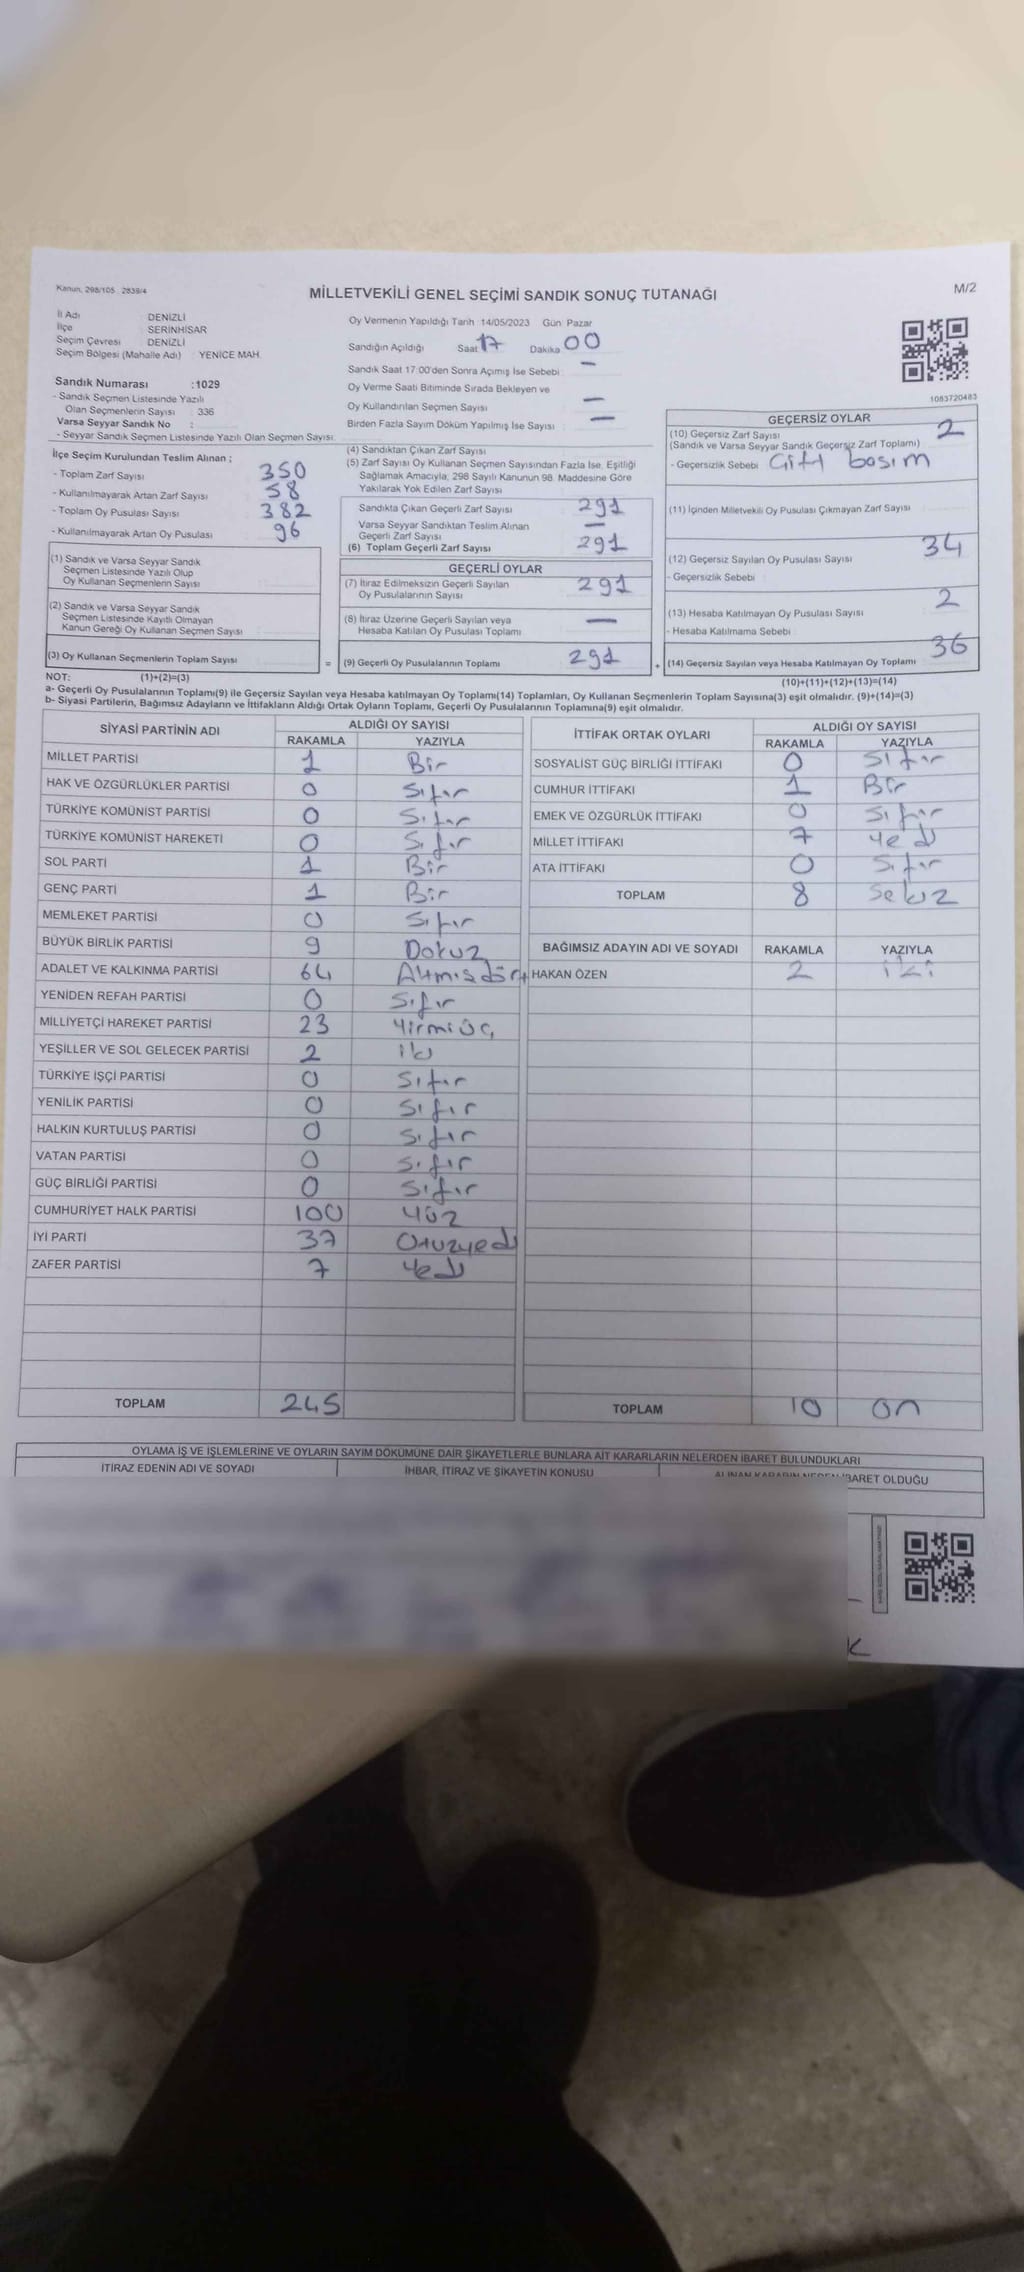 Kanun, 298/105 2839/4
MİLLETVEKİLİ GENEL SEÇİMİ SANDIK SONUÇ TUTANAĞI
M/2
İl Adı : DENİZLİ
İlçe : SERİNHİSAR
Seçim Çevresi : DENİZLİ
Seçim Bölgesi (Mahalle Adı) : YENİCE MAH.
Sandık Numarası :1029
- Sandık Seçmen Listesinde Yazılı
Olan Seçmenlerin Sayısı : 336
Varsa Seyyar Sandık No :
- Seyyar Sandık Seçmen Listesinde Yazılı Olan Seçmen Sayısı:
İlçe Seçim Kurulundan Teslim Alınan ;
- Toplam Zarf Sayısı 350
- Kullanılmayarak Artan Zarf Sayısı 58
- Toplam Oy Pusulası Sayısı 382
- Kullanılmayarak Artan Oy Pusulası 96
(1) Sandık ve Varsa Seyyar Sandık
Seçmen Listesinde Yazılı Olup
Oy Kullanan Seçmenlerin Sayısı
(2) Sandık ve Varsa Seyyar Sandık
Seçmen Listesinde Kayıtlı Olmayan
Kanun Gereği Oy Kullanan Seçmen Sayısı
(3) Oy Kullanan Seçmenlerin Toplam Sayısı
Oy Vermenin Yapıldığı Tarih 14/05/2023 Gün: Pazar
Sandığın Açıldığı Saat 17 Dakika 00
Sandık Saat 17:00'den Sonra Açımış İse Sebebi : —
Oy Verme Saati Bitiminde Sırada Bekleyen ve
Oy Kullandırılan Seçmen Sayısı —
Birden Fazla Sayım Döküm Yapılmış İse Sayısı : —
(4) Sandıktan Çıkan Zarf Sayısı
(5) Zarf Sayısı Oy Kullanan Seçmen Sayısından Fazla İse, Eşitliği
Sağlamak Amacıyla, 298 Sayılı Kanunun 98. Maddesine Göre
Yakılarak Yok Edilen Zarf Sayısı
Sandıkta Çıkan Geçerli Zarf Sayısı 291
Varsa Seyyar Sandıktan Teslim Alınan
Geçerli Zarf Sayısı —
(6) Toplam Geçerli Zarf Sayısı 291
GEÇERLİ OYLAR
(7) İtiraz Edilmeksizin Geçerli Sayılan
Oy Pusulalarının Sayısı 291
(8) İtiraz Üzerine Geçerli Sayılan veya
Hesaba Katılan Oy Pusulası Toplamı —
= (9) Geçerli Oy Pusulalarının Toplamı 291 +
1083720483
GEÇERSİZ OYLAR
(10) Geçersiz Zarf Sayısı 2
(Sandık ve Varsa Seyyar Sandık Geçersiz Zarf Toplamı)
- Geçersizlik Sebebi Çift basım
(11) İçinden Milletvekili Oy Pusulası Çıkmayan Zarf Sayısı
(12) Geçersiz Sayılan Oy Pusulası Sayısı 34
- Geçersizlik Sebebi
(13) Hesaba Katılmayan Oy Pusulası Sayısı 2
- Hesaba Katılmama Sebebi
(14) Geçersiz Sayılan veya Hesaba Katılmayan Oy Toplamı 36
NOT: (1)+(2)=(3) (10)+(11)+(12)+(13)=(14)
a- Geçerli Oy Pusulalarının Toplamı(9) ile Geçersiz Sayılan veya Hesaba katılmayan Oy Toplamı(14) Toplamları, Oy Kullanan Seçmenlerin Toplam Sayısına(3) eşit olmalıdır. (9)+(14)=(3)
b- Siyasi Partilerin, Bağımsız Adayların ve İttifakların Aldığı Ortak Oyların Toplamı, Geçerli Oy Pusulalarının Toplamına(9) eşit olmalıdır.
SİYASİ PARTİNİN ADI ALDIĞI OY SAYISI
RAKAMLA YAZIYLA
MİLLET PARTİSİ 1 Bir
HAK VE ÖZGÜRLÜKLER PARTİSİ 0 Sıfır
TÜRKİYE KOMÜNİST PARTİSİ 0 Sıfır
TÜRKİYE KOMÜNİST HAREKETİ 0 Sıfır
SOL PARTİ 1 Bir
GENÇ PARTİ 1 Bir
MEMLEKET PARTİSİ 0 Sıfır
BÜYÜK BİRLİK PARTİSİ 9 Dokuz
ADALET VE KALKINMA PARTİSİ 64 Altmışdört
YENİDEN REFAH PARTİSİ 0 Sıfır
MİLLİYETÇİ HAREKET PARTİSİ 23 Yirmiüç
YEŞİLLER VE SOL GELECEK PARTİSİ 2 iki
TÜRKİYE İŞÇİ PARTİSİ 0 Sıfır
YENİLİK PARTİSİ 0 Sıfır
HALKIN KURTULUŞ PARTİSİ 0 Sıfır
VATAN PARTİSİ 0 Sıfır
GÜÇ BİRLİĞİ PARTİSİ 0 Sıfır
CUMHURİYET HALK PARTİSİ 100 Yüz
İYİ PARTİ 37 Otuzyedi
ZAFER PARTİSİ 7 Yedi
TOPLAM 245
İTTİFAK ORTAK OYLARI ALDIĞI OY SAYISI
RAKAMLA YAZIYLA
SOSYALİST GÜÇ BİRLİĞİ İTTİFAKI 0 Sıfır
CUMHUR İTTİFAKI 1 Bir
EMEK VE ÖZGÜRLÜK İTTİFAKI 0 Sıfır
MİLLET İTTİFAKI 7 Yedi
ATA İTTİFAKI 0 Sıfır
TOPLAM 8 Sekiz
BAĞIMSIZ ADAYIN ADI VE SOYADI RAKAMLA YAZIYLA
HAKAN ÖZEN 2 iki
TOPLAM 10 on
OYLAMA İŞ VE İŞLEMLERİNE VE OYLARIN SAYIM DÖKÜMÜNE DAİR ŞİKAYETLERLE BUNLARA AİT KARARLARIN NELERDEN İBARET BULUNDUKLARI
İTİRAZ EDENİN ADI VE SOYADI İHBAR, İTİRAZ VE ŞİKAYETİN KONUSU ALINAN KARARIN NEDEN İBARET OLDUĞU